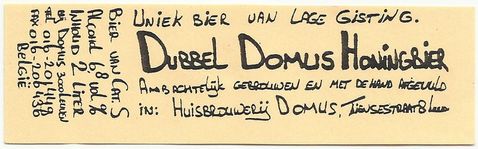 UNIEK BIER VAN LAGE GISTING.
DUBBEL DOMUS HONINGBIER
AMBACHTELIJK GEBROUWEN EN MET DE HAND AFGEVULD
IN: HUISBROUWERIJ DOMUS, TIENSESTRAAT 8 LEUVEN
BIER VAN CAT. S
ALCOHOL 6,8 VOL %
INHOUD 2 LITER
BIJ DOMUS 3000 LEUVEN
TEL 016-201449
FAX 016-206436
BELGIË